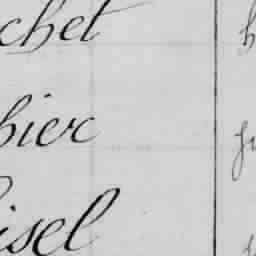 chet
hier
isel